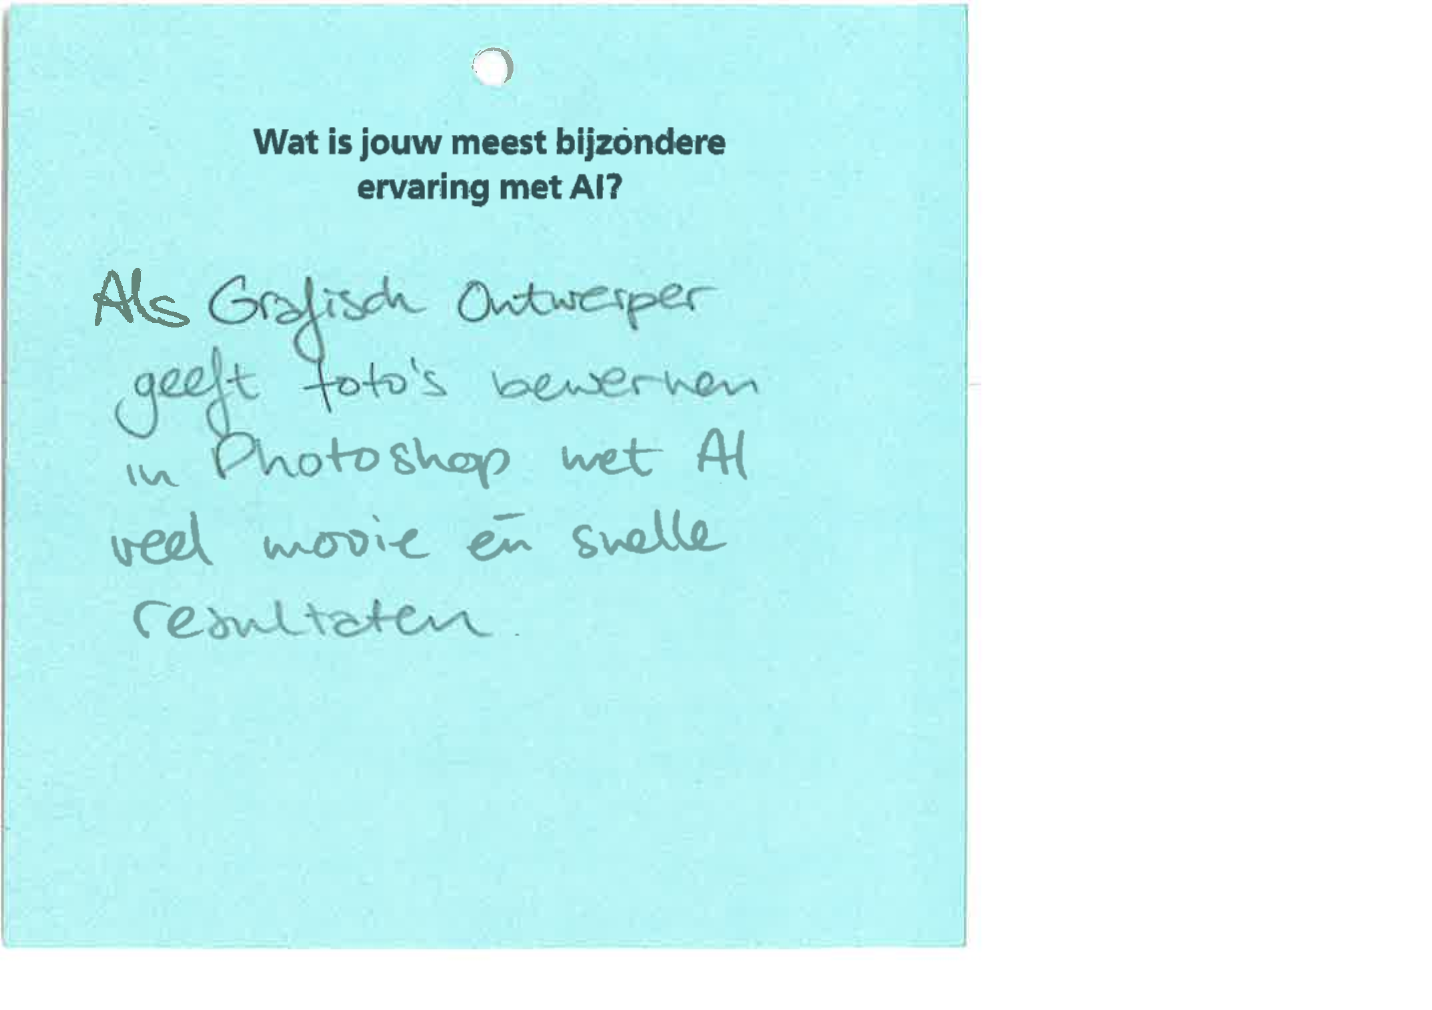 Wat is jouw meest bijzondere
ervaring met AI?
Als Grafisch Ontwerper
geeft foto's bewerken
in Photoshop met AI
veel mooie én snelle
resultaten.